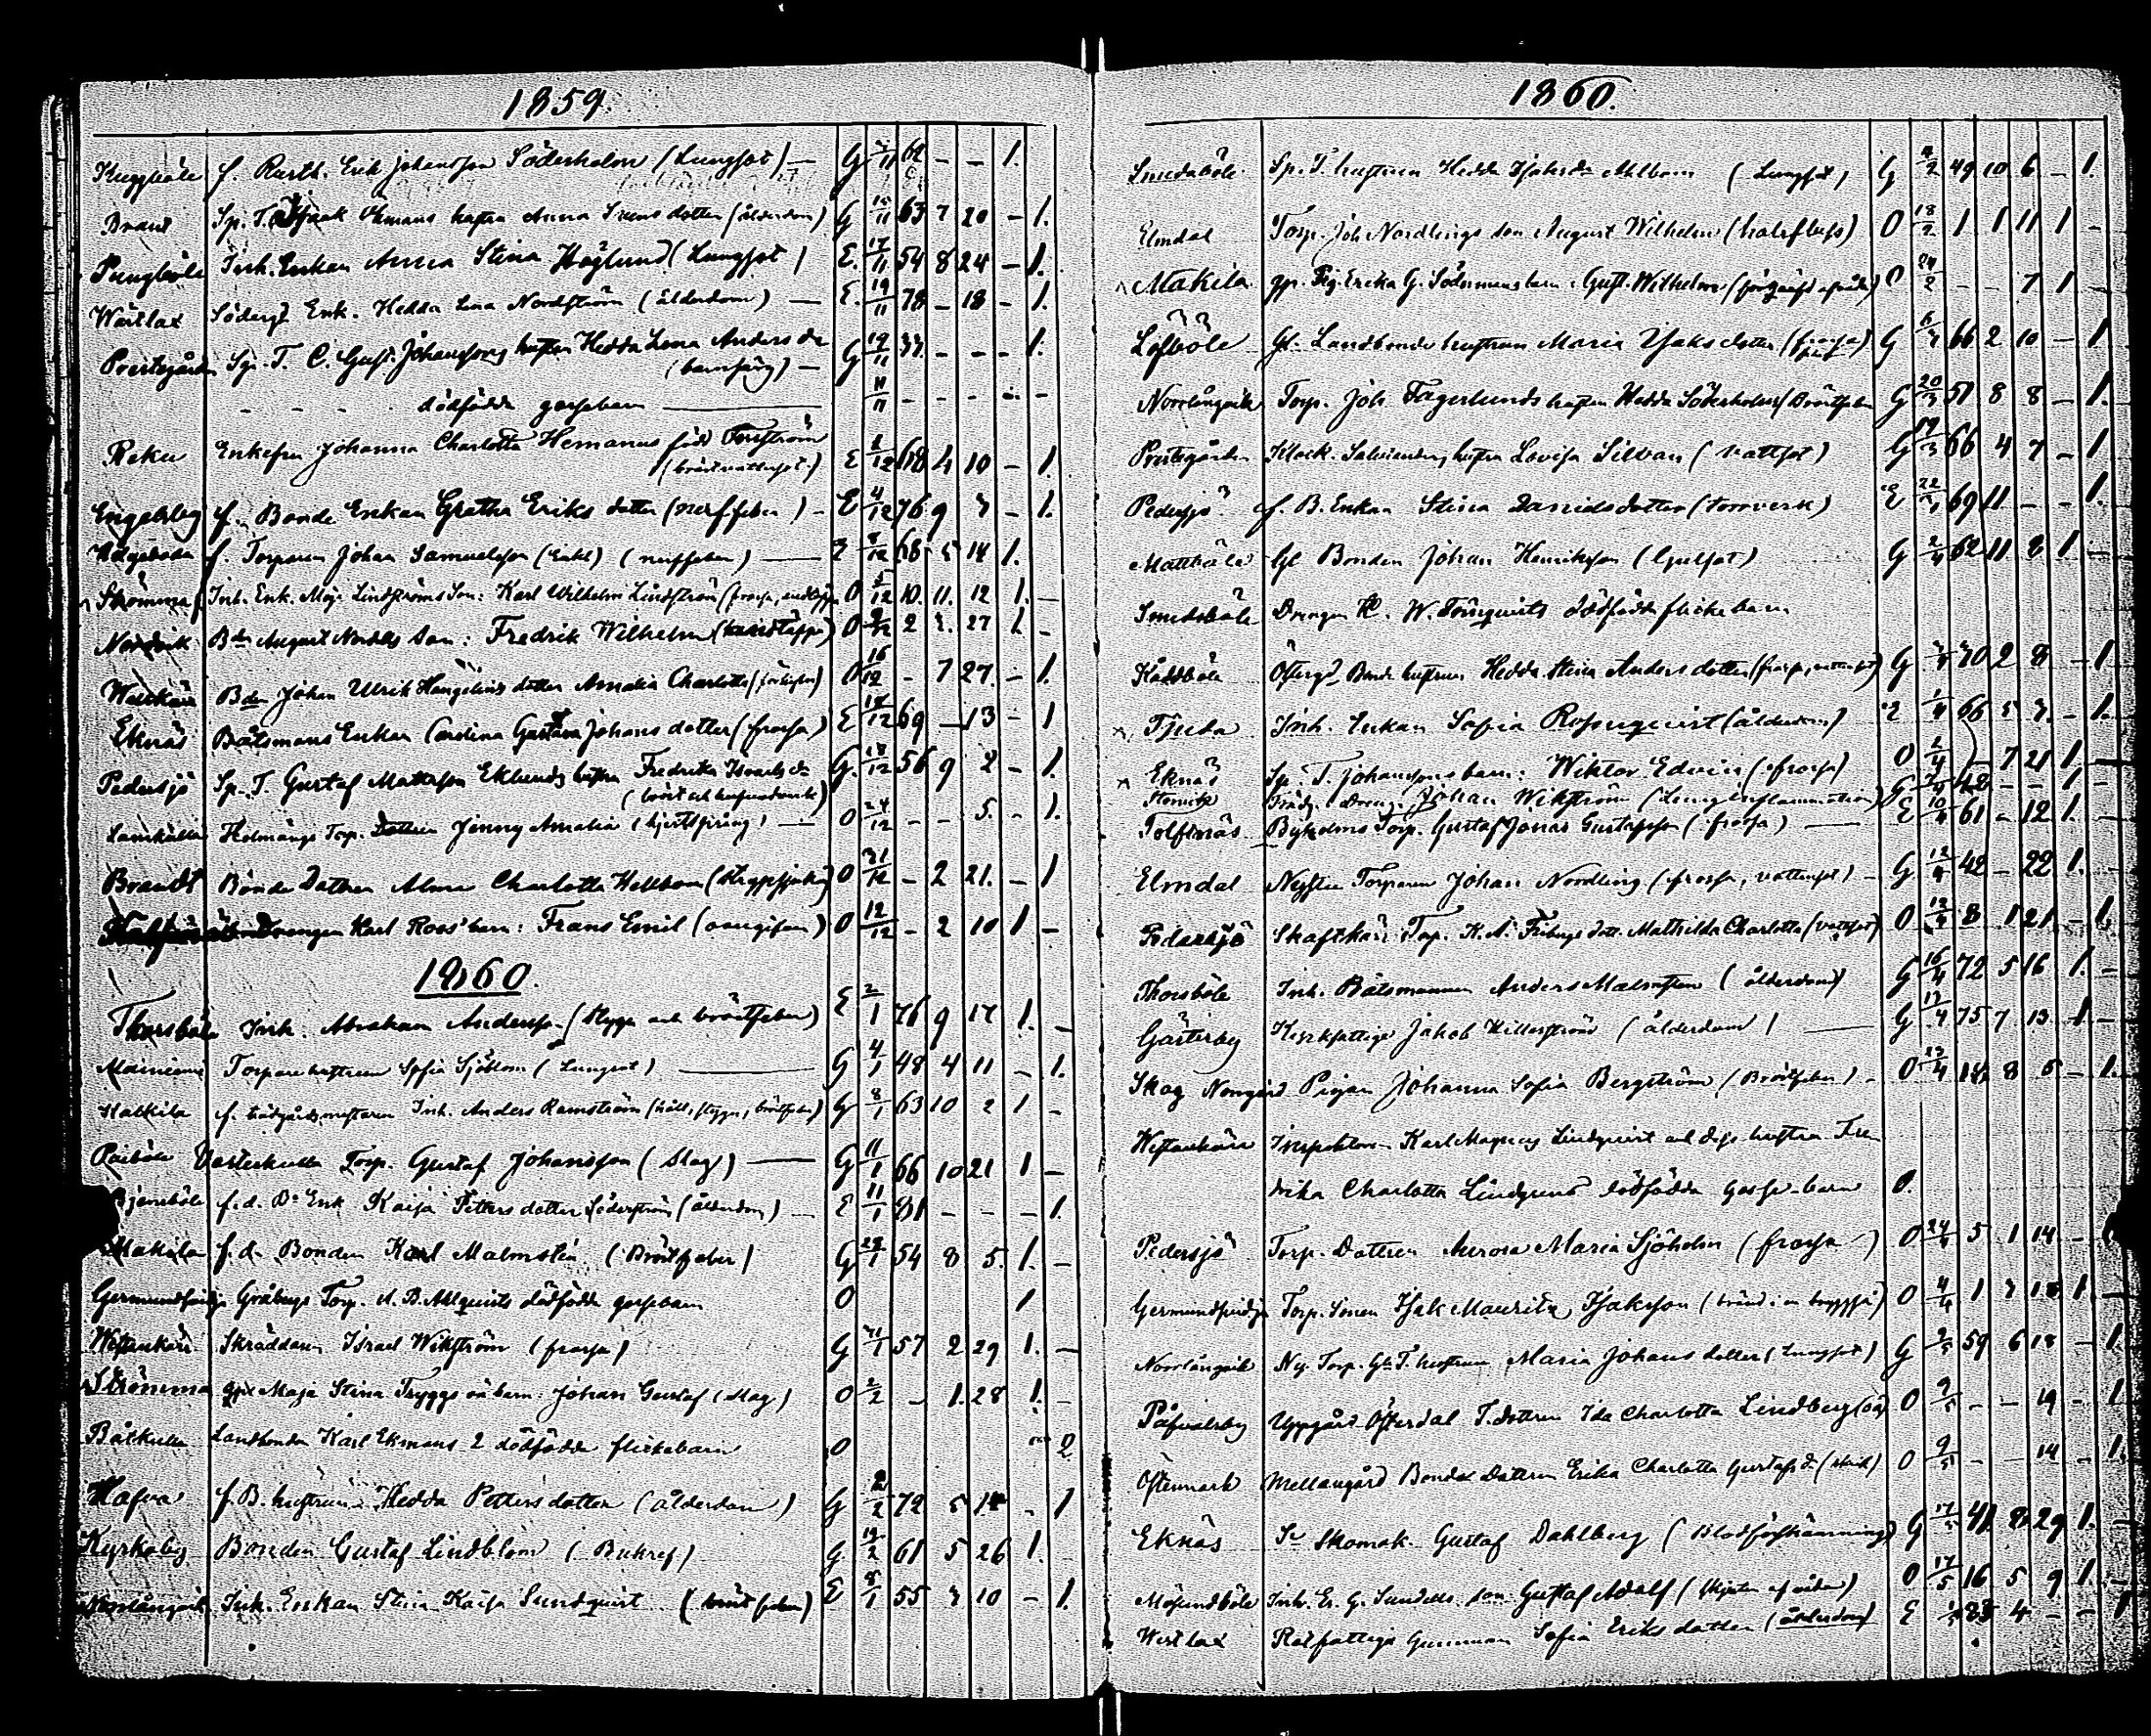 1859.
Kuggböle f. Rusth. Erik Johansson Söderholm (Lungsot) — G 11 62 – – 1.
Brant Sp. T. Isaak Ekmans hustru Anna dotter (ålderdom) G 15/11 63 7 20 – 1.
Pungböle Inh. Enkan Anna Stina Höglund (Lungsot) E. 17/11 54 8 24 – 1.
Wästlax Enk. Hedda Lena Nordström (ålderdom) — E. 19/11 78 – 18 – 1.
Prestgården Sp. T. C. Gust. Johanssons hustru Hedda Lena Anders dr G 19/11 37 – – – 1.
(barnsäng) —
– – – dödfödda gossebarn — 11/11 – – – –
Reku Enkefru Johanna Charlotta Hemanus född Forsström
(bröstvattusot.) E 2/12 68 4 10 – 1.
Engelsby f. Bonde Enkan Greta Eriks dotter (nerffeber) – E 4/12 76 9 3 – 1.
f. Torparen Johan Samuelsson (Enkl) (nerffeber) — E 8/12 68 5 14 1.
Strömma Inh. Enk. Maj. Lindströms Son: Karl Wilhelm Lindström (frossa, O 5/12 10. 11. 12 1. –
Nordvik Bdn August Nordells Son: Fredrik Wilhelm O 9/12 2 3. 27 1. –
Bden Johan Ulrik Hengelius dotter Amalia Charlotta O 16/12 – 7 27. – 1.
Eknäs Båtsmans Enkan Carolina Gustava Johans dotter (frossa) E 17/12 69 – 13 – 1
Pedersjö Sp. T. Gustaf Mattsson Eklunds hustru Fredrika Israels dr G. 18/12 56 9 2 – 1.
Holmängs Torp. Dottren Jenny Amalia (hjertsprång) — O 24/12 – – 5. – 1.
Brandt Bonde Dottren Alma Charlotta Hellbom O 31/12 – 2 21. – 1
Drengen Karl Roos' barn: Frans Emil (oangifven) O 12/12 – 2 10 1 –
1860.
Thorsböle Inh. Abraham Andersson (Stygn och bröstfeber) E 2/1 76 9 17 1. –
Torpare hustrun Sofia Sjöblom (Lungsot) — G 4/1 48 4 11 – 1.
Malkila f. trädgårdsmästaren Inh. Anders Ramström (håll, stygn, bröstfeber) G 8/1 63 10 2 1 –
Paiböle Vesterkulla Torp. Gustaf Johansson (slag) — G 11/1 66 10 21 1 –
Björnsböle f.d. Bds Enk Kaisa Petters dotter Söderström (ålderdom) — E 11/1 81 – – – 1.
Makila f.d. Bonden Karl Malmsten (Bröstfeber) G 28/1 54 8 5. 1. –
Germundsvidja Gråbergs Torp. A. B. Ahlquists dödfödda gossebarn O 1
Westankärr Skräddaren Israel Wikström (frossa) G 31/1 57 2 29 1. –
Strömma Maja Stina Tryggs oä barn: Johan Gustaf (slag) O 2/2 – 1. 28 1. –
Båtkulla Landbonden Karl Ekmans 2 dödfödda flickebarn O 2
Hafva f. B. hustrun Hedda Petters dotter (ålderdom) G 2/2 72 5 14 – 1
Kyrkoby Bonden Gustaf Lindblom (Bukref) G. 12/2 61 5 26 1.
Norrlångvik Inh. Enkan Stina Kaisa Sundquist (bröst feber) E 8/1 55 3 10 – 1.
1860.
Smedsböle Sp. T. hustrun Hedda Isaksdr Ahlbom (Lungsot) G 4/2 49 10 6 – 1.
Elmdal Torp. Joh Nordlings son August Wilhelm (halsfluss) O 18/2 1 1 11 1 –
Makila gpr. Pig. Erika G. Södermans barn: Gust. Wilhelm O 24/2 – – 7 1 –
Löfböle Gl. Landbonde hustrun Maria Isaks dotter (frossa) G 66 2 10 – 1
Norrlångvik Torp. Joh Fagerlunds hustru Hedda Söderholm (Bröstfeber G 20/3 51 8 8 – 1.
Prestgården Klock. hustru Lovisa Silvan (vattsot) G 17/3 66 4 7 – 1
Pedersjö f. B. Enkan Stina Daniels dotter (Torrverk) E 22 69 11 – – 1.
Mattböle Gl Bonden Johan Henriksson (Gulsot) G 2/4 62 11 8 1 –
Smedsböle Drengen K. W. Törnquists dödfödda flickebarn
Kåddböle Bonde hustrun Hedda Stina Anders dotter (frossa, vattusot) G 70 2 8 – 1
Tjuda Inh. Enkan Sofia Rosenquist (ålderdom) E 1/4 66 5 7. – 1.
Eknäs Sp. T. Johanssons barn: Wiktor Edvin (frossa) O 2/4 – 7 21 1. –
Trädg. Dreng. Johan Wikström (Lunginflammation) G 48 – – 1. –
Tolfsnäs Byholms Torp. Gustaf Jonas Gustafsson (frossa) — E 10/4 61 – 12 1. –
Elmdal Torparen Johan Nordling (frossa, vattusot) – G 12/4 42 – 22 1. –
Pedersjö Skaftkärr Torp. K. A. Fribergs dott. Mathilda Charlotta (vattsot) O 13/4 8 1 21 – 1.
Thorsböle Inh. Båtsmannen Anders Malmsten (ålderdom) G 16/4 72 5 16 1. –
Gästerby Kyrkfattige Jakob Hellström (ålderdom) — G 17/4 75 7 13 1 –
Skog Norrgård Pigan Johanna Sofia Bergström (Bröstfeber) – O 23/4 18 8 5 – 1.
Westankärr Inspektoren Karl Magnus Lindquist och dess hustru Fre-
drika Charlotta Lindgrens dödfödda gosse-barn O.
Pedersjö Torp. Dottren Aurora Maria Sjöholm (frossa) O 24/4 5 1 14 –
Germundsvidja Torp. Sonen Isak Mauritz Isaksson (bränd i en O 4/4 1 3 18 1 –
Norrlångvik Ny. Torp. hustrun Maria Johans dotter (Lungsot) G 59 6 18 – 1.
Påfvalsby Uppgård Österdal T. dottren Ida Charlotta Lindberg O 9/5 – – 19 – 1
Östermark Mellangård Bonde Dottren Erika Charlotta Gustafs dr O 9/5 – – 14 – 1.
Eknäs Skomak. Gustaf Dahlberg (Blodförskämning) G 17/5 41 8 29 1. –
Mosundböle Inh. E. G. Sundells son Gustaf Adolf (skjuten af våda) O 17/5 16 5 9 1. –
Westlax Rotfattiga Gumman Sofia Eriks dotter (ålderdom) E 83 4 – – 1